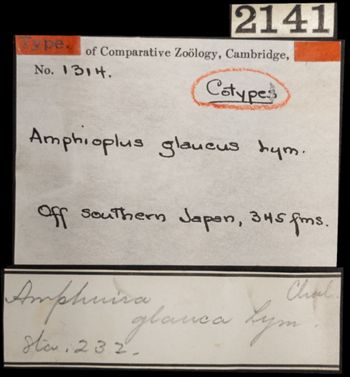 2141
Type. of Comparative Zoölogy, Cambridge,
No. 1314.
Cotypes
Amphioplus glaucus Lym.
Off southern Japan, 345 fms.
Amphiura Chal.
glauca Lym.
Sta. 232.